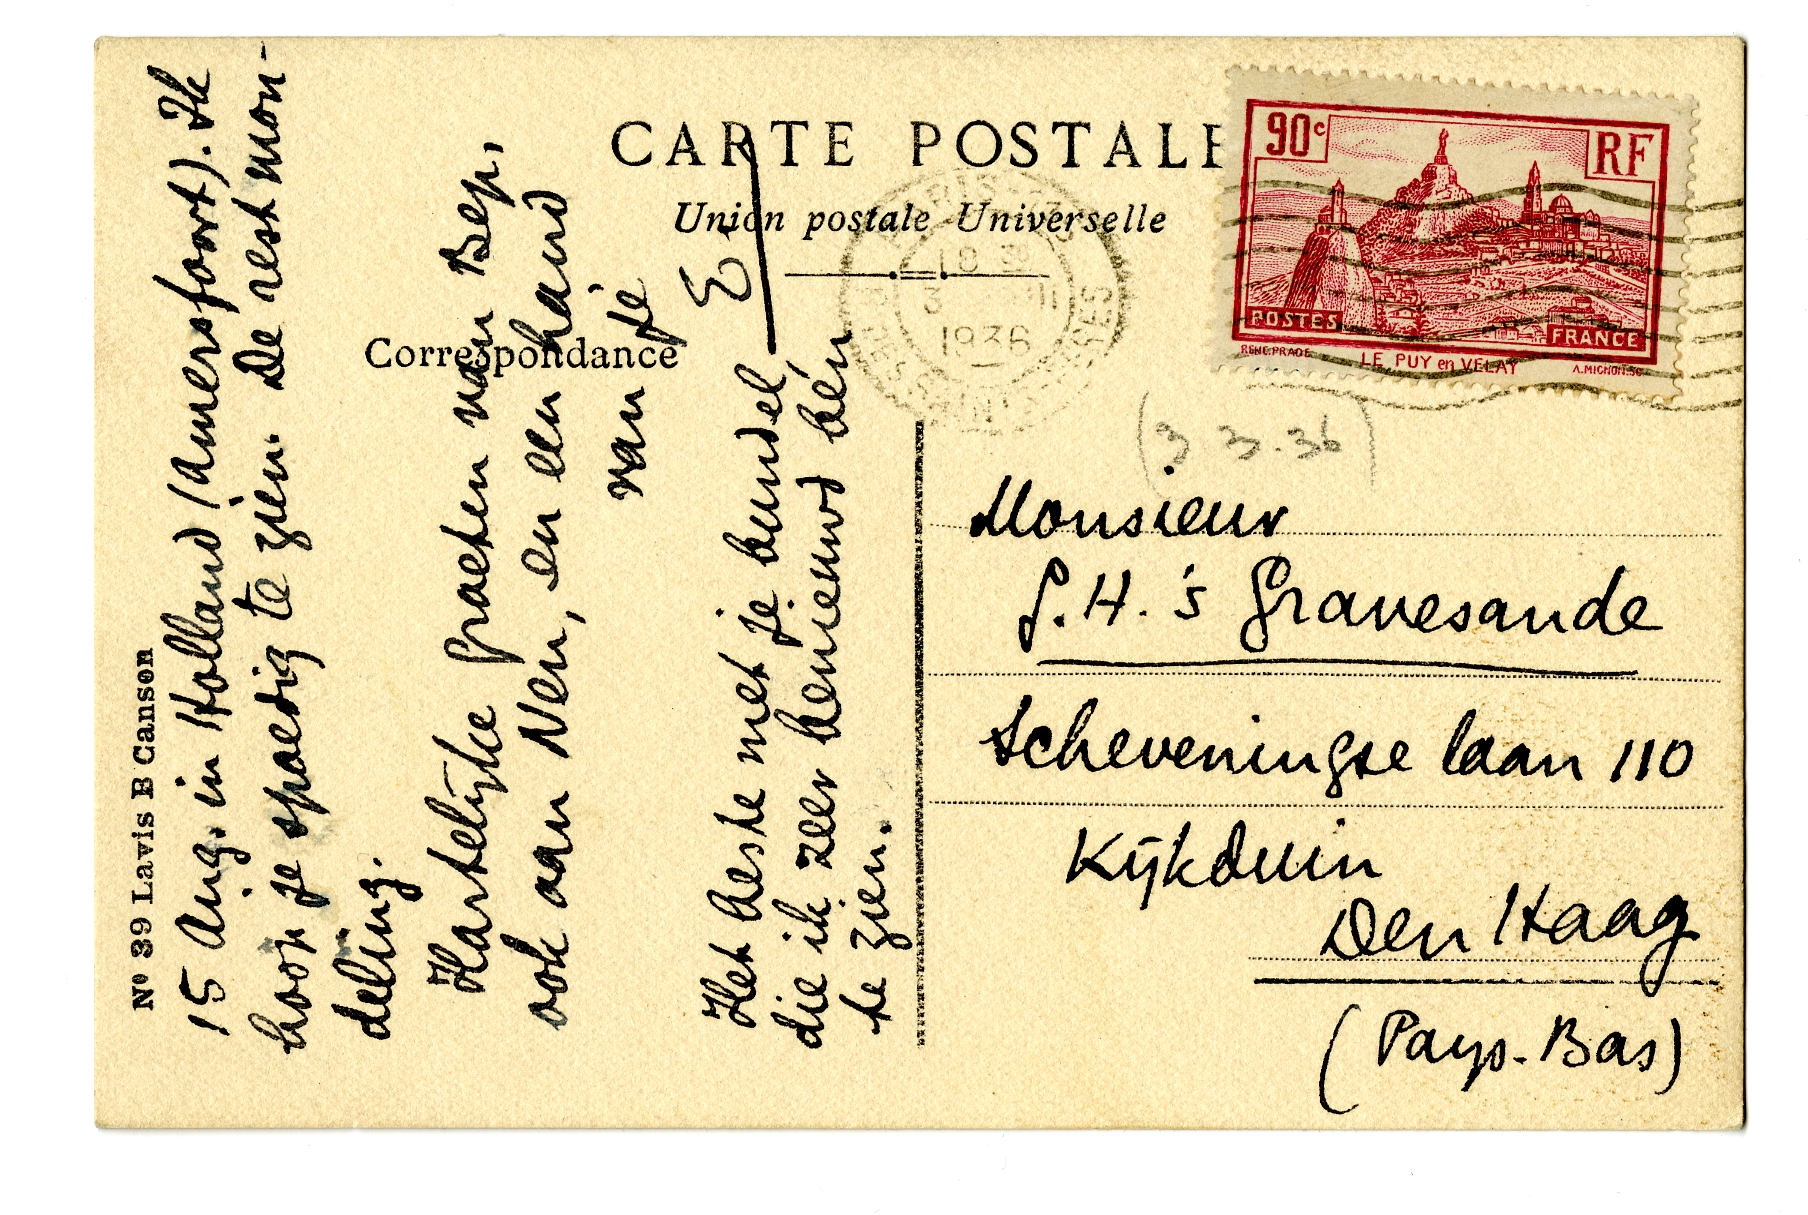 CARTE POSTALE
Union postale Universelle
Correspondance
Nº 39 Lavis B Canson
15 Aug. in Holland (Amersfoort). Ik
hoop je spoedig te zien. De rest mon-
deling.
Hartelijke groeten van Bep,
ook aan Nen, en een hand
van je
E.
Het beste met je bundel,
die ik zeer benieuwd bén
te zien.
18 30
3 III
1936
90c
RF
POSTES
FRANCE
RENE.PRADE
LE PUY en VELAY
A.MICHON.SC
(3.3.36)
Monsieur
G.H. 's Gravesande
Scheveningse laan 110
Kijkduin
Den Haag
(Pays-Bas)